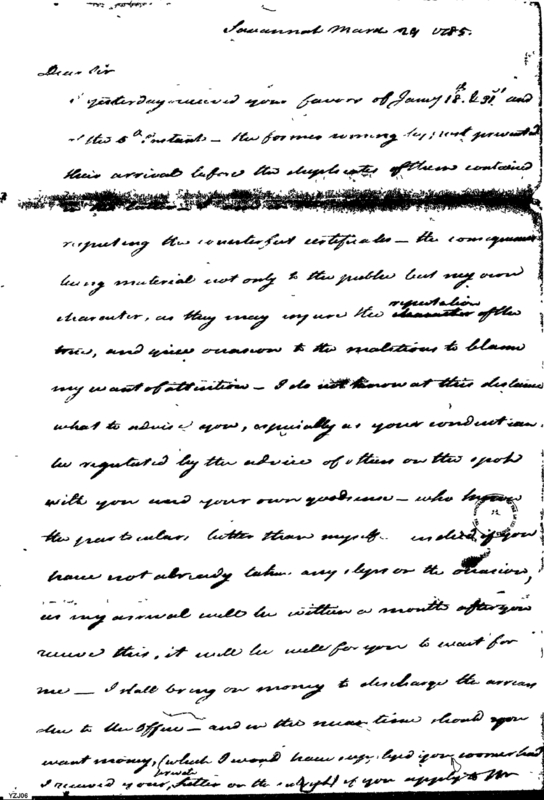 Savannah March 29 1785.
Dear Sir
I yesterday received your favors of Jany 18th & 31st and
of the 5th instant – the former coming by; prevented
their arrival before the duplicates of them contained
in the
respecting the counterfeit certificates – the consequences
being material not only to the public but my own
character, as they may injure the reputation of the
true, and give occasion to the malitious to blame
my want of attention – I do not know at this distance
what to advise you, especially as your conduct can
be regulated by the advice of others on the spot
with you and your own good sense – who know
the particulars better than myself. indeed if you
have not already taken any steps on the occasion,
as my arrival will be within a month after you
receive this, it will be well for you to wait for
me – I shall bring on money to discharge the arrears
due to the Office – and in the mean time should you
want money, (which I would have supplied you sooner had
I received your private Letter on the subject) if you apply to Mr
YZJ06